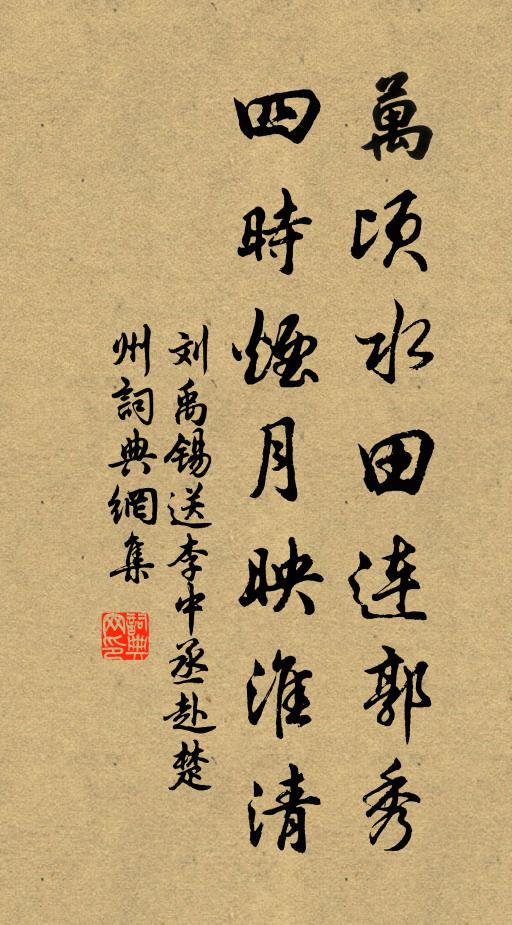 萬頃水田連郭秀
四時煙月映淮清
刘禹锡送李中丞赴楚
州詞典網集
詞典網印